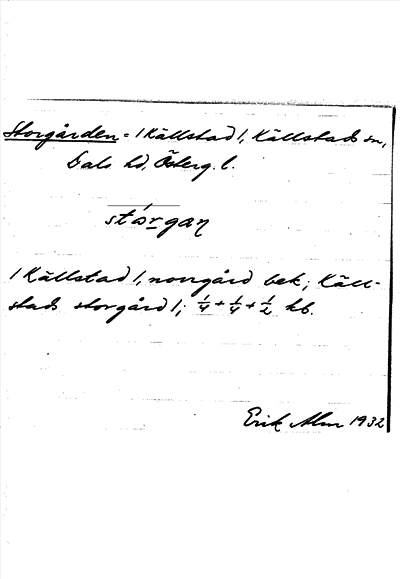 Storgården = /Källstad/, Källstads sn,
Dals hd, Österg. l.
stórgan
/Källstad/, norrgård bek; Käll-
stads storgård/; 1/4 + 1/4 + 1/2 hb.
Erik Alm 1932